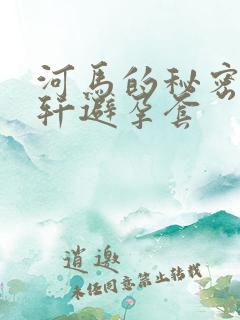 河马的秘密
轩避孕套
逍邀
未经同意禁止转载